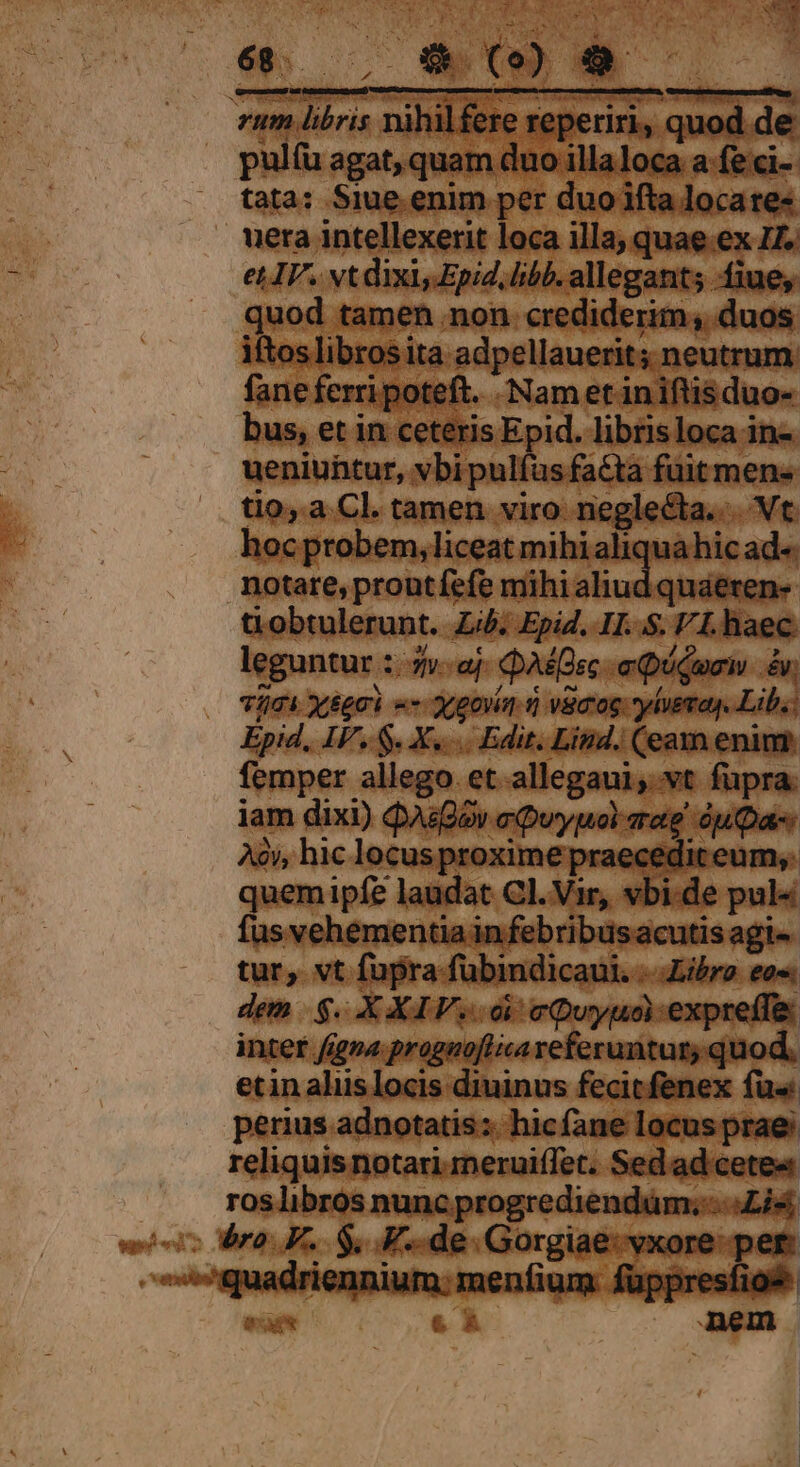 68. ❁ (o) ❁
rum libris nihil fere reperiri, quod de
pulſu agat, quam duo illa loca a ſe ci-
tata: Siue enim per duo iſta loca re-
uera intellexerit loca illa, quae ex II.
et IV. vt dixi, Epid, libb. allegant; ſiue,
quod tamen non crediderim, duos
iſtos libros ita adpellauerit; neutrum
ſane ferri poteſt. Nam et in iſtis duo-
bus, et in ceteris Epid. libris loca in-
ueniuntur, vbi pulſus facta fuit men-
tio, a Cl. tamen viro neglecta. Vt
hoc probem, liceat mihi aliqua hic ad-
notare, prout ſeſe mihi aliud quaeren-
ti obtulerunt. Lib. Epid. II. S. VI. haec
leguntur : ἢν αἱ φλέβες σφύζωσιν ἐν
τῇσι χερσὶ -- χρονίη ἡ νȣ͂σος γίνεται. Lib.
Epid. IV. §. X. Edit. Lind. (eam enim
ſemper allego et allegaui, vt ſupra
iam dixi) φλεβῶν σφυγμοὶ παρ' ὀμφα-
λὸν, hic locus proxime praecedit eum,
quem ipſe laudat Cl. Vir, vbi de pul-
ſus vehementia in febribus acutis agi-
tur, vt ſupra ſubindicaui. Libro eo-
dem §. XXIV. οἱ σφυγμοὶ expreſſe
inter ſigna prognoſtica referuntur, quod,
et in aliis locis diuinus fecit ſenex ſu-
perius adnotatis; hic ſane locus prae
reliquis notari meruiſſet. Sed ad cete-
ros libros nunc progrediendum. Li-
bro V. §. V. de Gorgiae vxore per
quadriennium menſium ſuppresſio-
nem